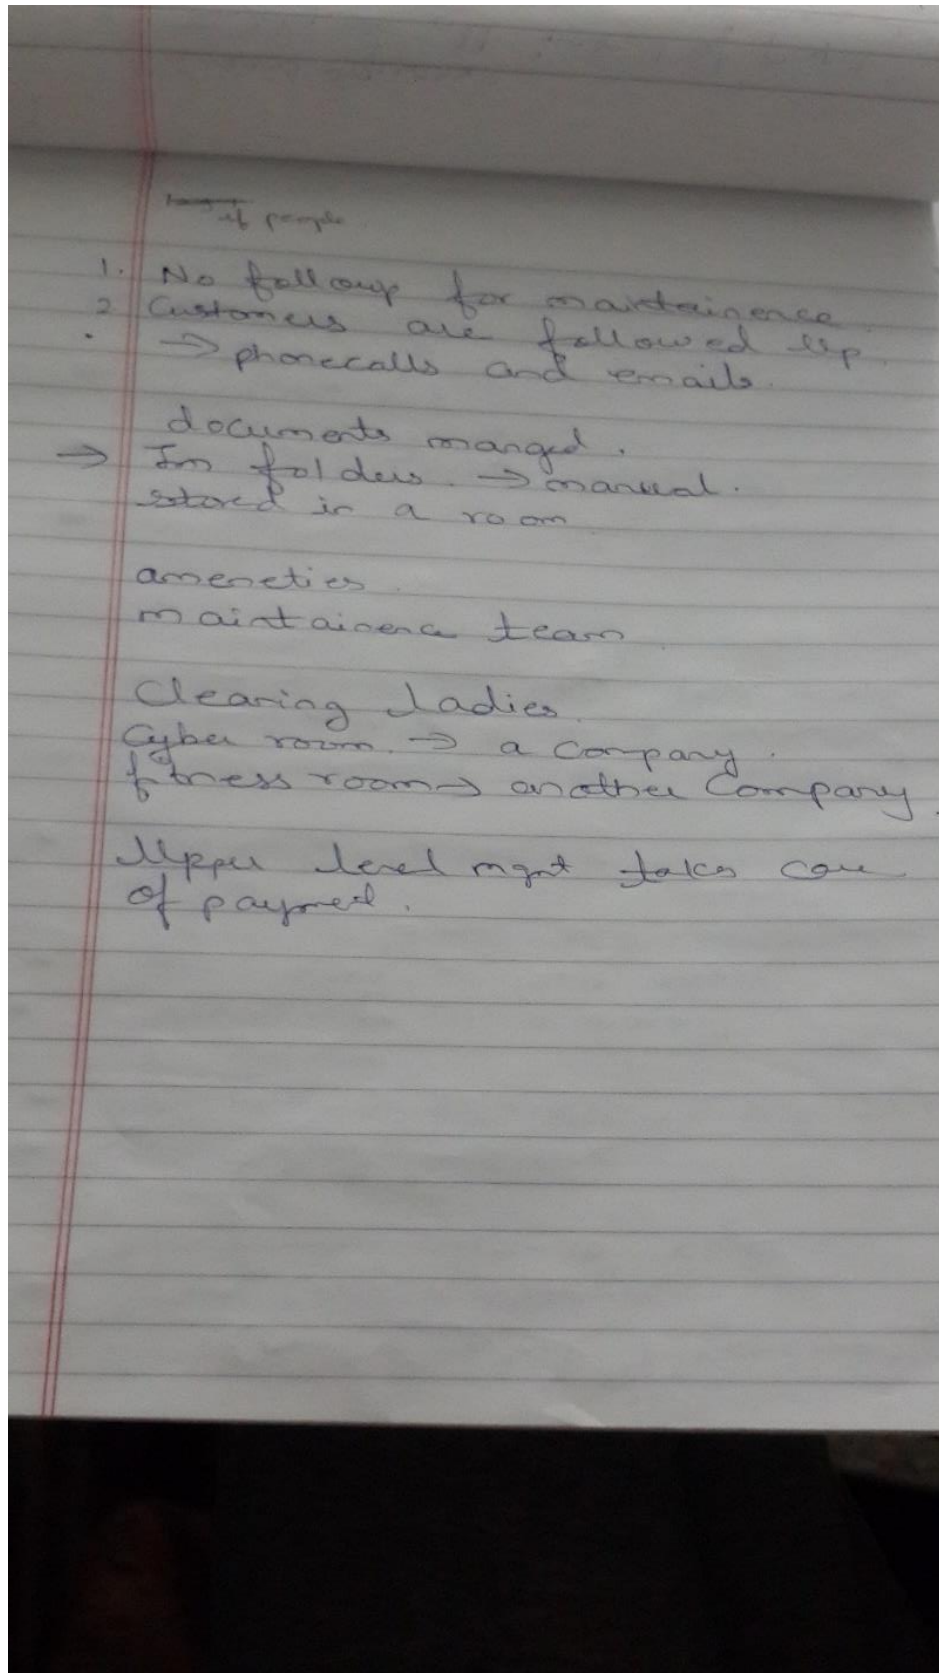 of people
1. No followup for maintainence
2 Customers are followed up
. → phonecalls and emails.
documents manged.
→ In folders. → manual.
stored in a room
ameneties.
maintainence team
Cleaning Ladies.
Cyber room. → a company.
fitness room → another Company.
Upper level mgnt takes care
of payment.